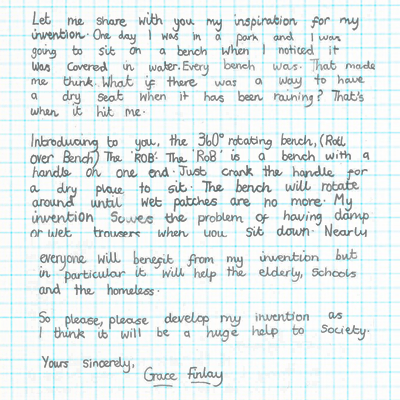 Let me share with you my inspiration for my
invention. One day I was in a park and I was
going to sit on a bench when I noticed it
was covered in water. Every bench was. That made
me think. What if there was a way to have
a dry seat when it has been raining? That's
when it hit me.
Introducing to you, the 360° rotating bench, (Roll
over Bench) The 'ROB'. The 'ROB' is a bench with a
handle on one end. Just crank the handle for
a dry place to sit. The bench will rotate
around until wet patches are no more. My
invention Solves the problem of having damp
or wet trousers when you sit down. Nearly
everyone will benefit from my invention but
in particular it will help the elderly, schools
and the homeless.
So please, please develop my invention as
I think it will be a huge help to society.
Yours sincerely,
Grace Finlay